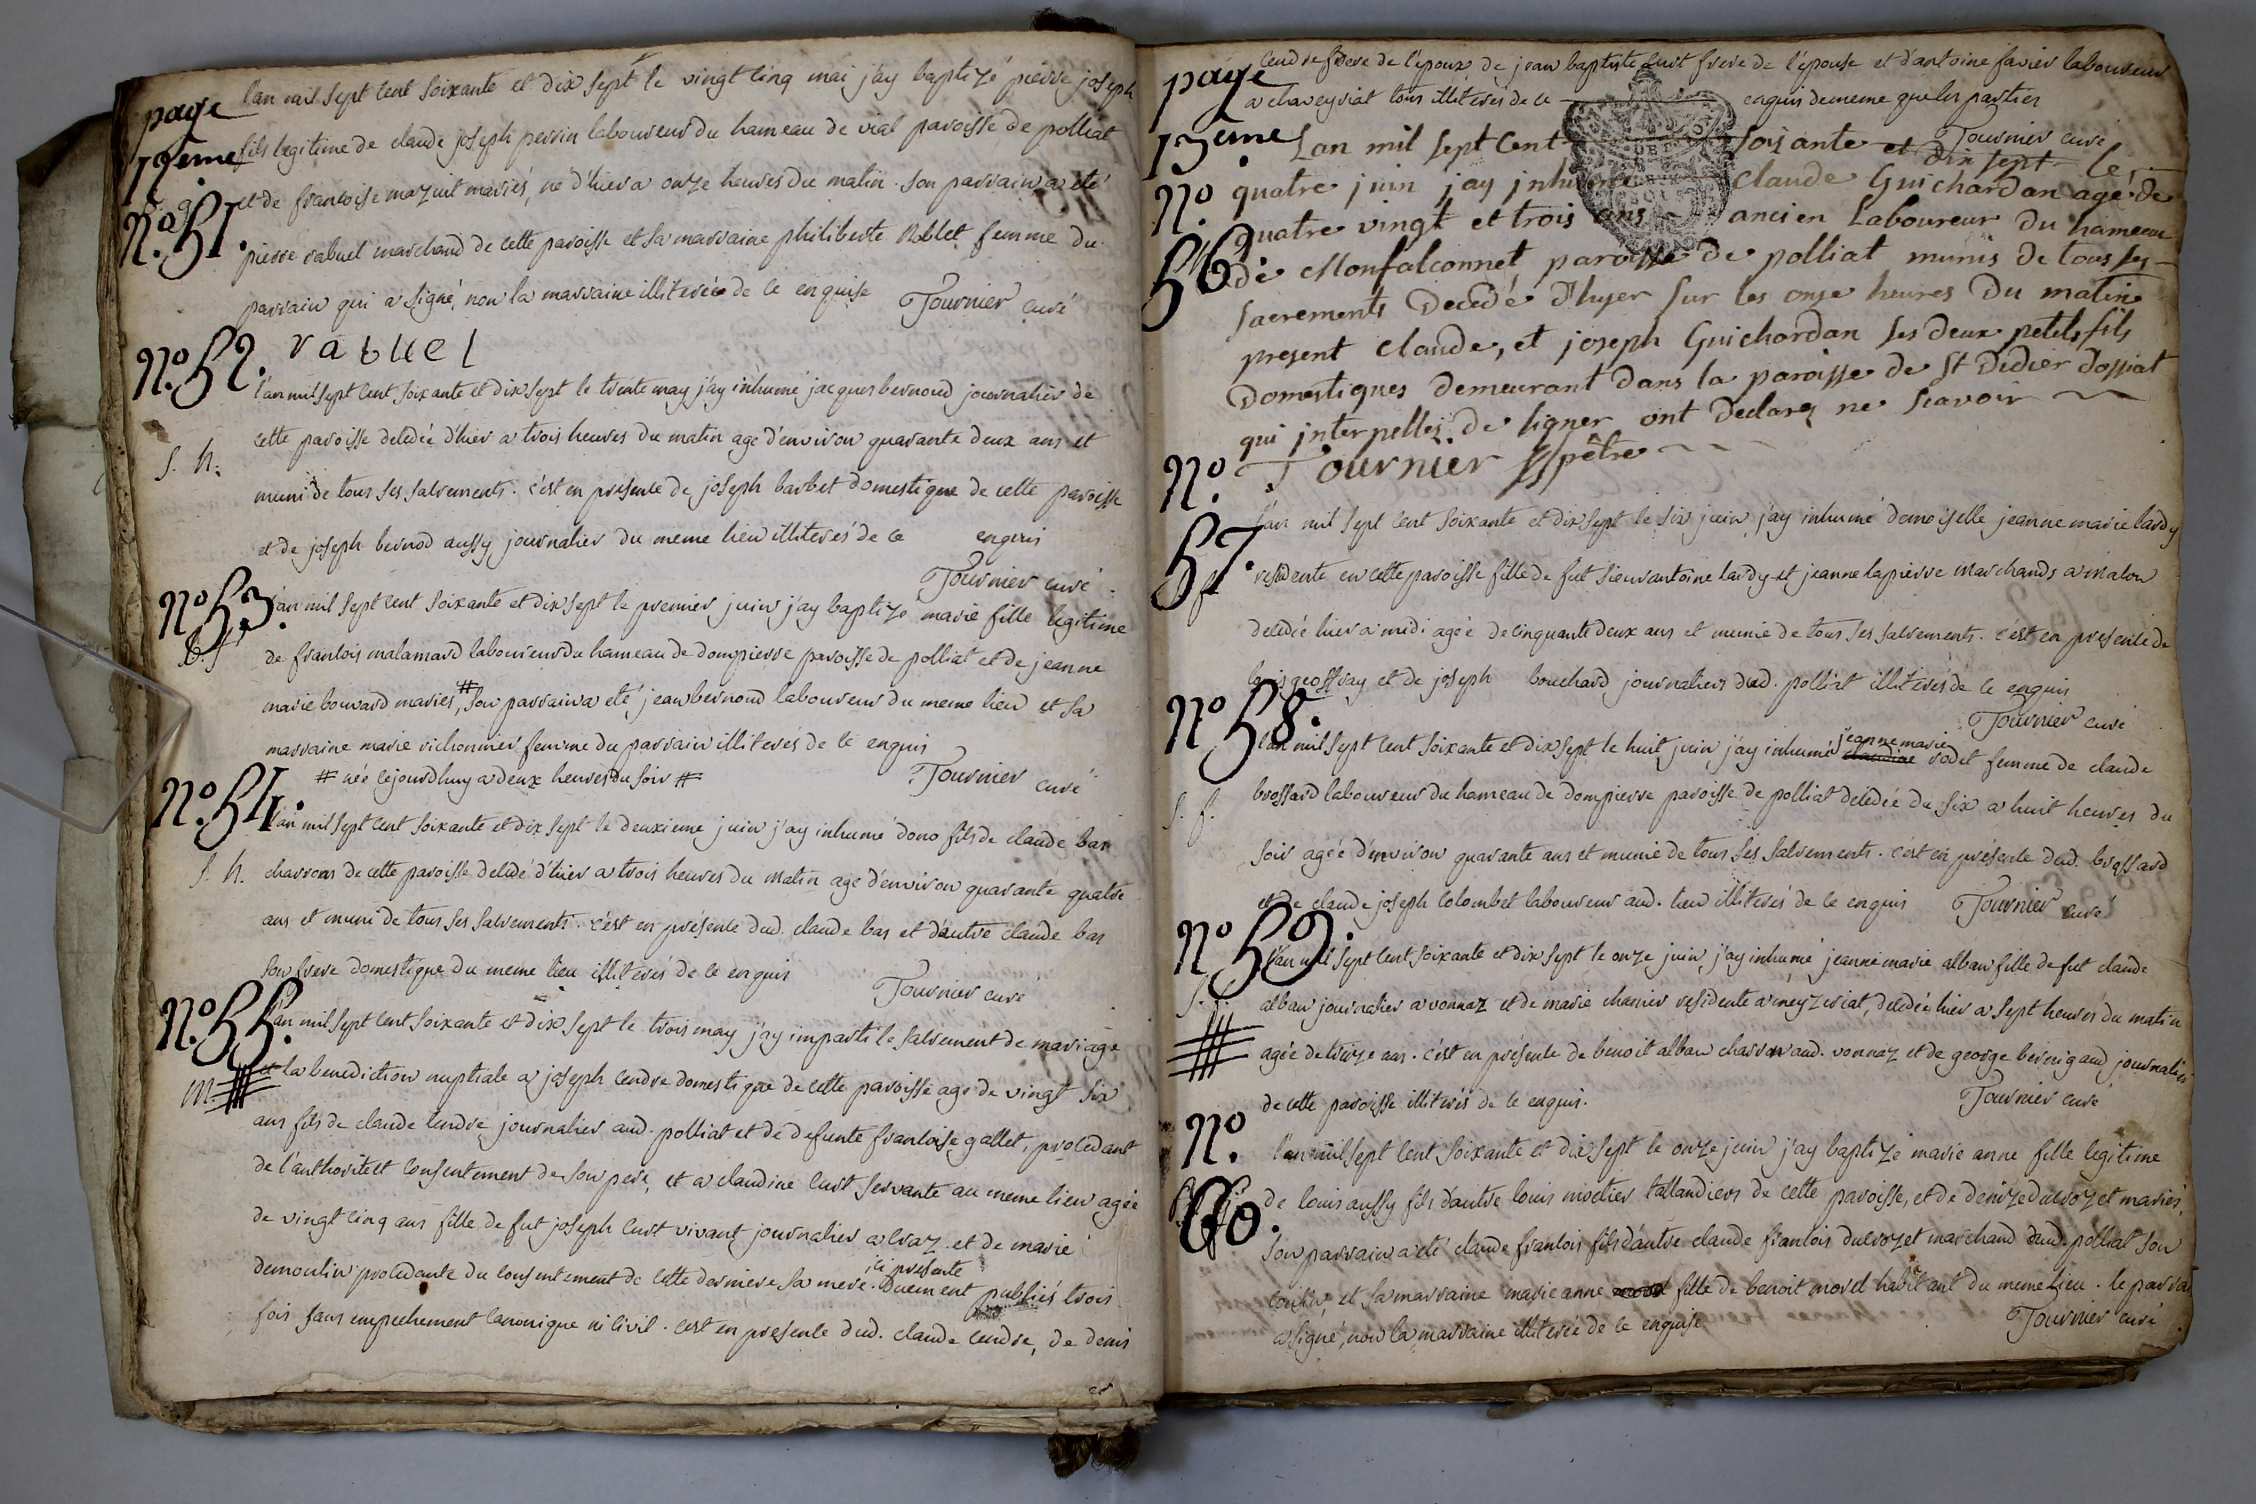 page
12eme
l'an mil sept cent soixante et dix sept le vingt cinq mai j'ay baptizé pierre joseph
fils legitime de claude joseph perrin laboureur du hameau de vial paroisse de polliat
B. g.
No. 51.
et de francoise mazuit mariés, né d'hier a onze heures du matin. son parrain a eté
pierre rabuel marchand de cette paroisse et sa marraine philiberte Noblet femme du
parrain qui a signé, non la marraine illiterée de ce enquise Tournier curé
No. 52.
rabuel
l'an mil sept cent soixante et dix sept le trente may j'ay inhumé jacques bernoud journalier de
cette paroisse decedée d'hier a trois heures du matin agé d'environ quarante deux ans et
S. h.
muni de tous ses sacrements. c'est en presence de joseph barbet domestique de cette paroisse
et de joseph bernod aussy journalier du meme lieu illiterés de ce enquis
Tournier curé
No. 53.
B. f.
l'an mil sept cent soixante et dix sept le premier juin j'ay baptizé marie fille legitime
de francois malamard laboureur du hameau de dompierre paroisse de polliat et de jeanne
marie bouvard mariés, # son parrain a eté jean bernoud laboureur du meme lieu et sa
marraine marie vichonnier femme du parrain illiterés de ce enquis
# née cejourdhuy a deux heures du soir # Tournier curé
No. 54.
l'an mil sept cent soixante et dix sept le deuxieme juin j'ay inhumé dono fils de claude bas
S. h.
charrons de cette paroisse decedé d'hier a trois heures du matin agé d'environ quarante quatre
ans et muni de tous ses sacrements. c'est en présence dud. claude bas et d'autre claude bas
son frere domestique du meme lieu illiterés de ce enquis Tournier curé
No. 55.
l'an mil sept cent soixante et dix sept le trois may j'ay imparti le sacrement de mariage
M.
et la benediction nuptiale a joseph cendre domestique de cette paroisse agé de vingt six
ans fils de claude cendre journalier aud. polliat et de defunte francoise gallet, procedant
de l'authorité et consentement de son pere, et a claudine curt servante au meme lieu agée
de vingt cinq ans fille de fut joseph curt vivant journalier a craz et de marie
demoulin procedante du consentement de cette derniere sa mere ici presente. Duement publiés trois
fois sans empechement canonique ni civil. c'est en presence dud. claude cendre, de denis
page
13eme
cendre frere de l'epoux, de jean baptiste curt frere de l'épouse et d'antoine favier laboureur
a chaveyriat tous illiterés de ce enquis de meme que les parties
Tournier curé
No.
56.
Lan mil sept cent soixante et dix sept le
quatre juin jay jnhumé claude Guichardan agé de
quatre vingt et trois ans ancien Laboureur du hameau
de Monfalconnet paroisse de polliat munis de tous ses
sacrements Decedé D'hyer sur les onze heures Du matin
present claude, et joseph Guichardan ses deux petits fils
Domestiques demeurant dans la paroisse de St Didier dossiat
qui jnterpellés De signer ont Declarez ne scavoir
Tournier pêtre
No.
57.
l'an mil sept cent soixante et dix sept le six juin j'ay inhumé demoiselle jeanne marie lardy
residente en cette paroisse fille de fut sieur antoine lardy et jeanne lapierre marchands a malou
decedée hier a midi agée de cinquante deux ans et munie de tous ses sacrements. c'est en presence de
louis geoffray et de joseph bouchard journaliers dud. polliat illiterés de ce enquis
Tournier curé
No. 58.
l'an mil sept cent soixante et dix sept le huit juin j'ay inhumé claudine jeanne marie rodet femme de claude
S. f.
brossard laboureur du hameau de dompierre paroisse de polliat decedée du six a huit heures du
soir agée d'environ quarante ans et munie de tous ses sacrements. c'est en présence dud. brossard
et de claude joseph colombet laboureur aud. lieu illiterés de ce enquis Tournier curé
No. 59.
S. f.
l'an mil sept cent soixante et dix sept le onze juin, j'ay inhumé jeanne marie alban fille de fut claude
alban journalier a vonnaz et de marie chanier residente a meyzeriat, decedée hier a sept heures du matin
agée de treize ans. c'est en présence de benoit alban charron aud. vonnaz et de george bernigaud journalier
de cette paroisse illiterés de ce enquis. Tournier curé
No.
60.
l'an mil sept cent soixante et dix sept le onze juin j'ay baptizé marie anne fille legitime
de louis aussy fils d'autre louis mortier taillandiers de cette paroisse, et de denize ducrozet mariés,
son parrain a eté claude francois fils d'autre claude francois ducrozet marchand dud. polliat son
cousin et sa marraine marie anne fille de benoit morel habitant du meme lieu. le parrain
a signé, non la marraine illiterée de ce enquise Tournier curé